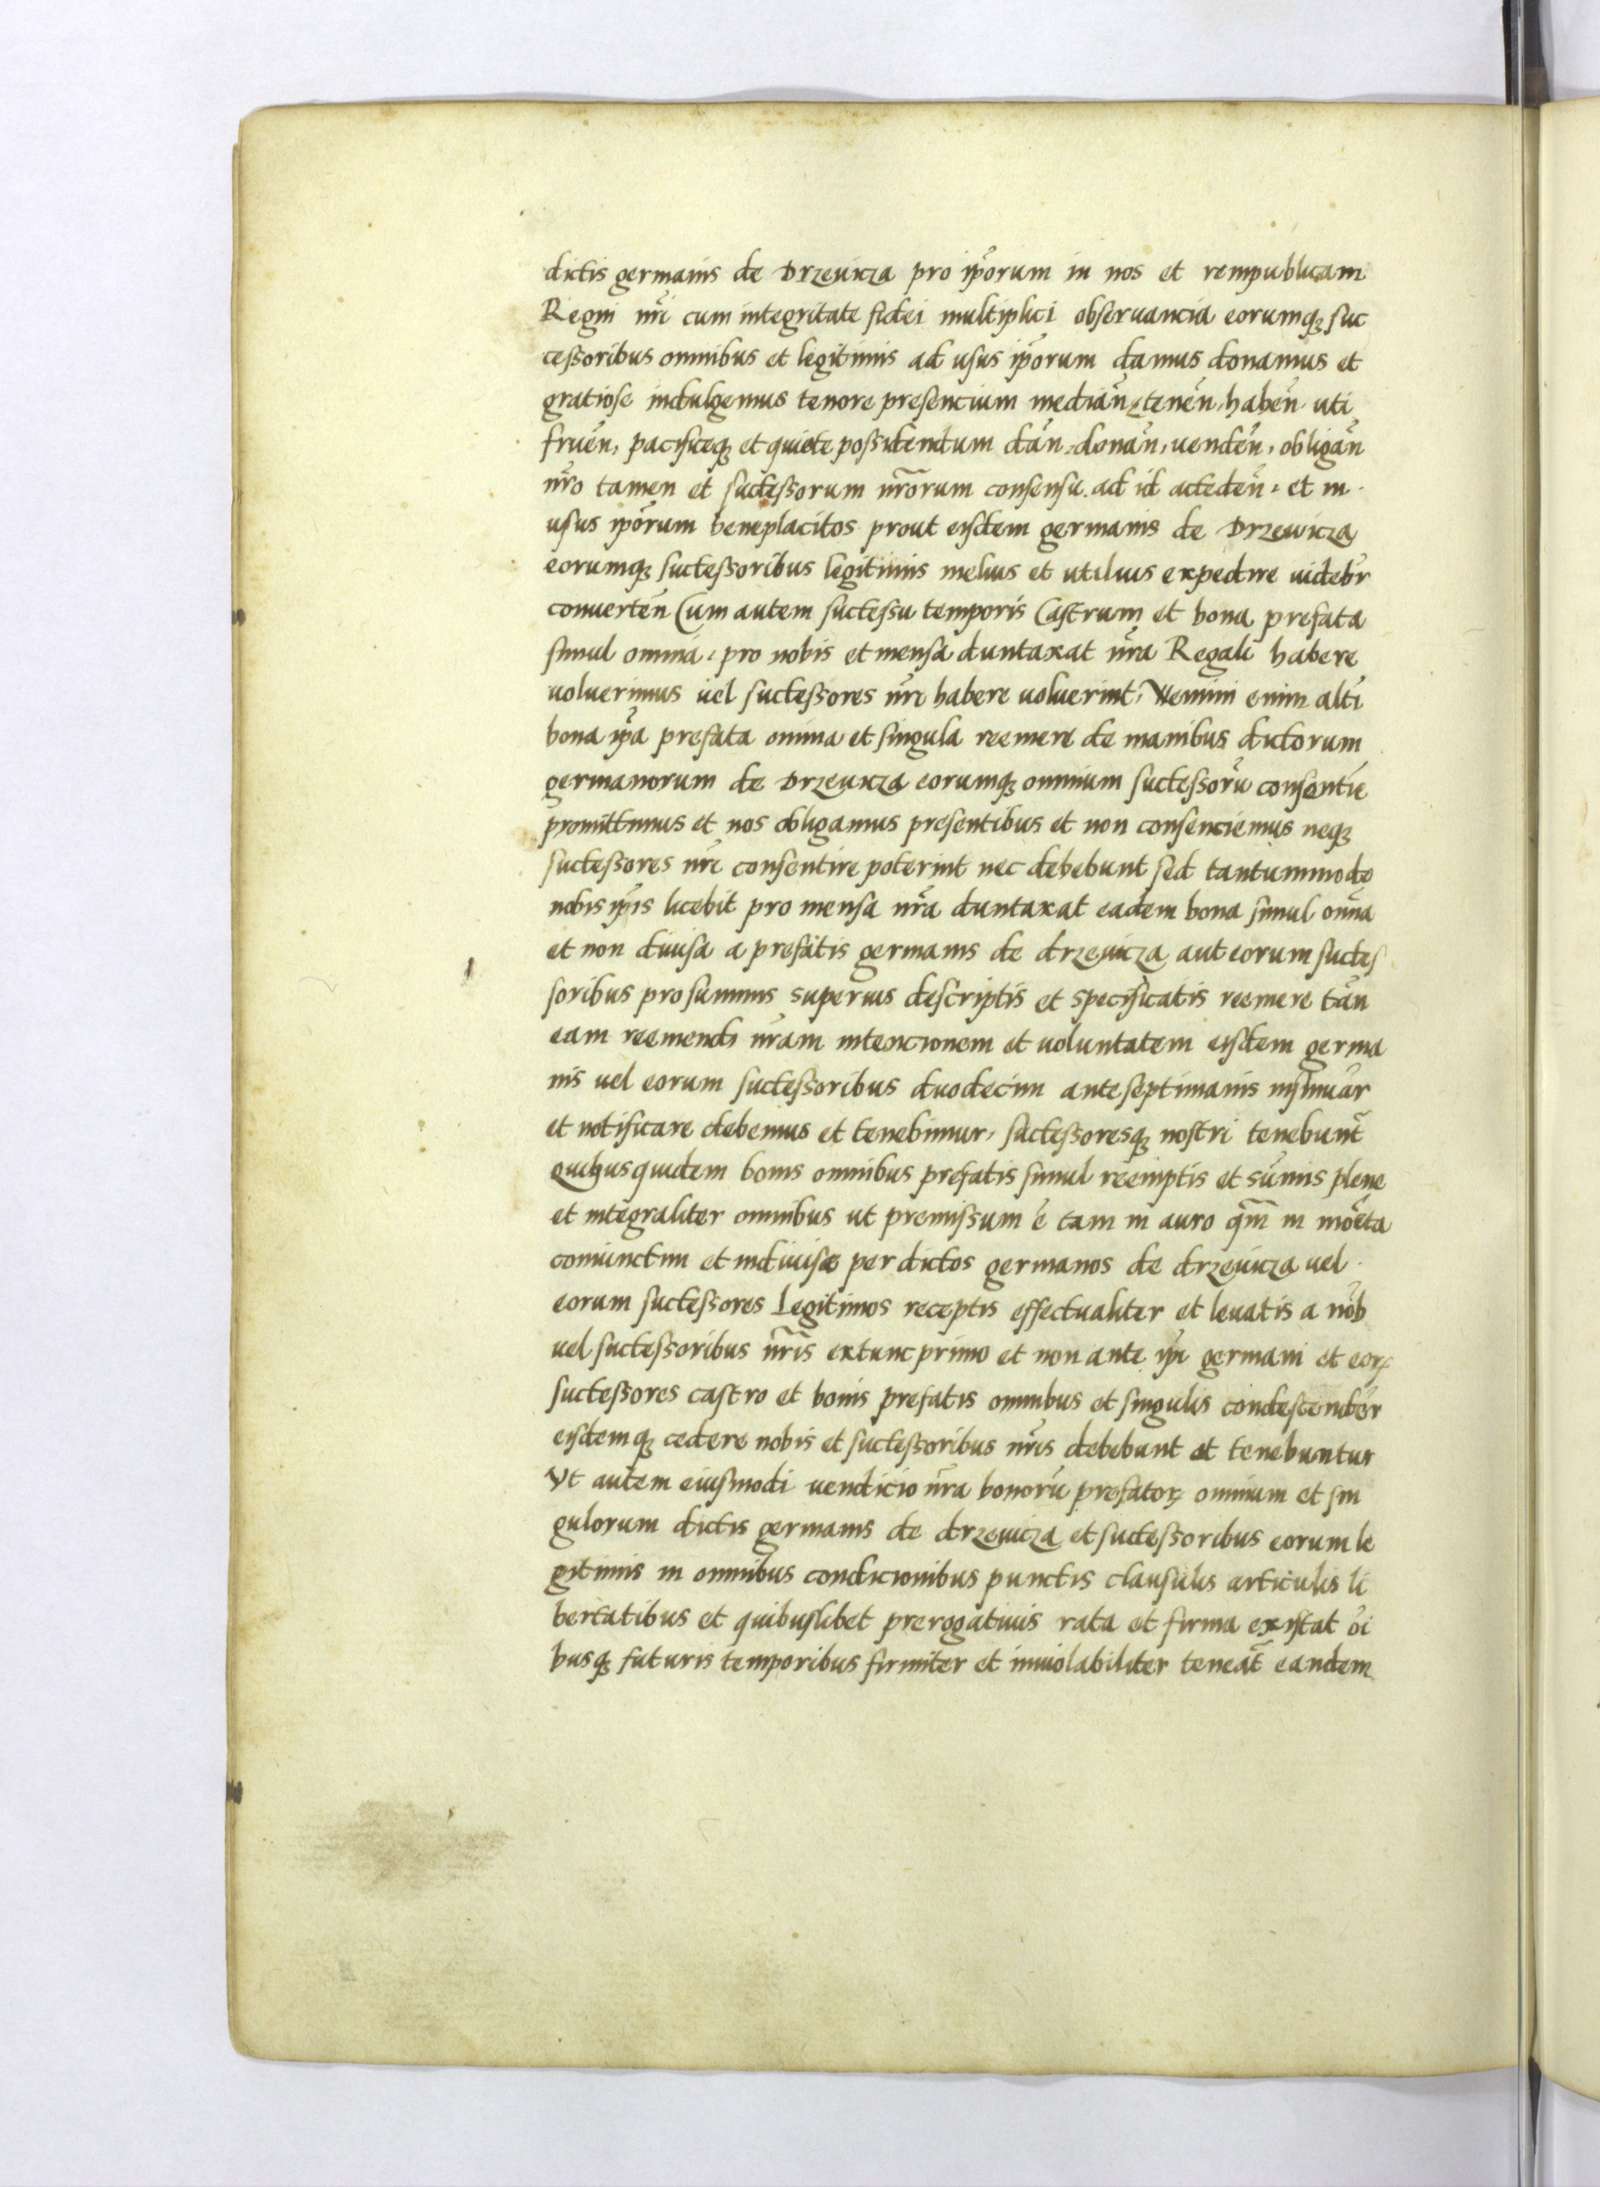 dictis germanis de Drzewicza pro ip̃orum in nos et rempublicam
Regni nr̃i cum integritate fidei multiplici obseruancia eorumq; suc
cessoribus omnibus et legitimis ad usus ip̃orum damus donamus et
gratiose indulgemus tenore presencium median̄ tenen̄, haben̄ uti
fruen̄, pacificeq; et quiete possidendum dan̄, donan̄, venden̄, obligan̄
nr̃o tamen et successorum nr̃orum consensu ad id acceden̄, et in
usus ip̃orum beneplacitos prout eisdem germanis de Drzewicza
eorumq; successoribus legitimis melius et utilius expedire uidebr̃
conuerten̄ Cum autem successu temporis Castrum et bona prefata
simul omnia, pro nobis et mensa duntaxat nr̃a Regali habere
uoluerimus uel successores nr̃i habere uoluerint, Nemini enim altĩ
bona ip̃a prefata omnia et singula reemere de manibus dictorum
germanorum de Drzewicza eorumq; omnium successorū consentir̃e
promittimus et nos obligamus presentibus et non consenciemus neq;
successores nr̃i consentire poterint nec debebunt sed tantummodo
nobis ip̃is licebit pro mensa nr̃a duntaxat eadem bona simul om̃ia
et non diuisa a prefatis germanis de drzewicza aut eorum succes
soribus pro summis superius descriptis et specificatis reemere tan̄
eam reemendi nr̃am intencionem et uoluntatem eisdem germa
nis uel eorum successoribus duodecim ante septimanis insinuar̃
et notificare debemus et tenebimur, successoresq; nostri tenebunt̃
Quibus quidem bonis omnibus prefatis simul reemptis et sum̃is plene
et integraliter omnibus ut premissum ẽ tam in auro q̃m in mõeta
coniunctim et indiuise per dictos germanos de drzewicza uel
eorum successores Legitimos receptis effectualiter et leuatis a nob̃
uel successoribus nr̃is extunc primo et non ante ip̃i germani et eorꝝ
successores castro et bonis prefatis omnibus et singulis condescender̃
eisdemq; cedere nobis et successoribus nr̃is debebunt et tenebuntur
Vt autem eiusmodi uendicio nr̃a bonorū prefatorꝝ omnium et sin
gulorum dictis germanis de drzewicza et successoribus eorum le
gitimis in omnibus condicionibus punctis clausulis articulis li
bertatibus et quibuslibet prerogatiuis rata et firma existat õi
busq; futuris temporibus firmiter et inuiolabiliter teneat̃ eandem